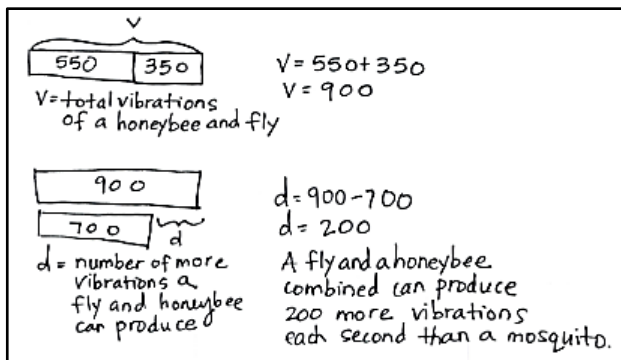 V
550 350
V=total vibrations
of a honeybee and fly
V=550+350
V=900
900
700 d
d= number of more
vibrations a
fly and honeybee
can produce
d=900-700
d=200
A fly and a honeybee
combined can produce
200 more vibrations
each second than a mosquito.